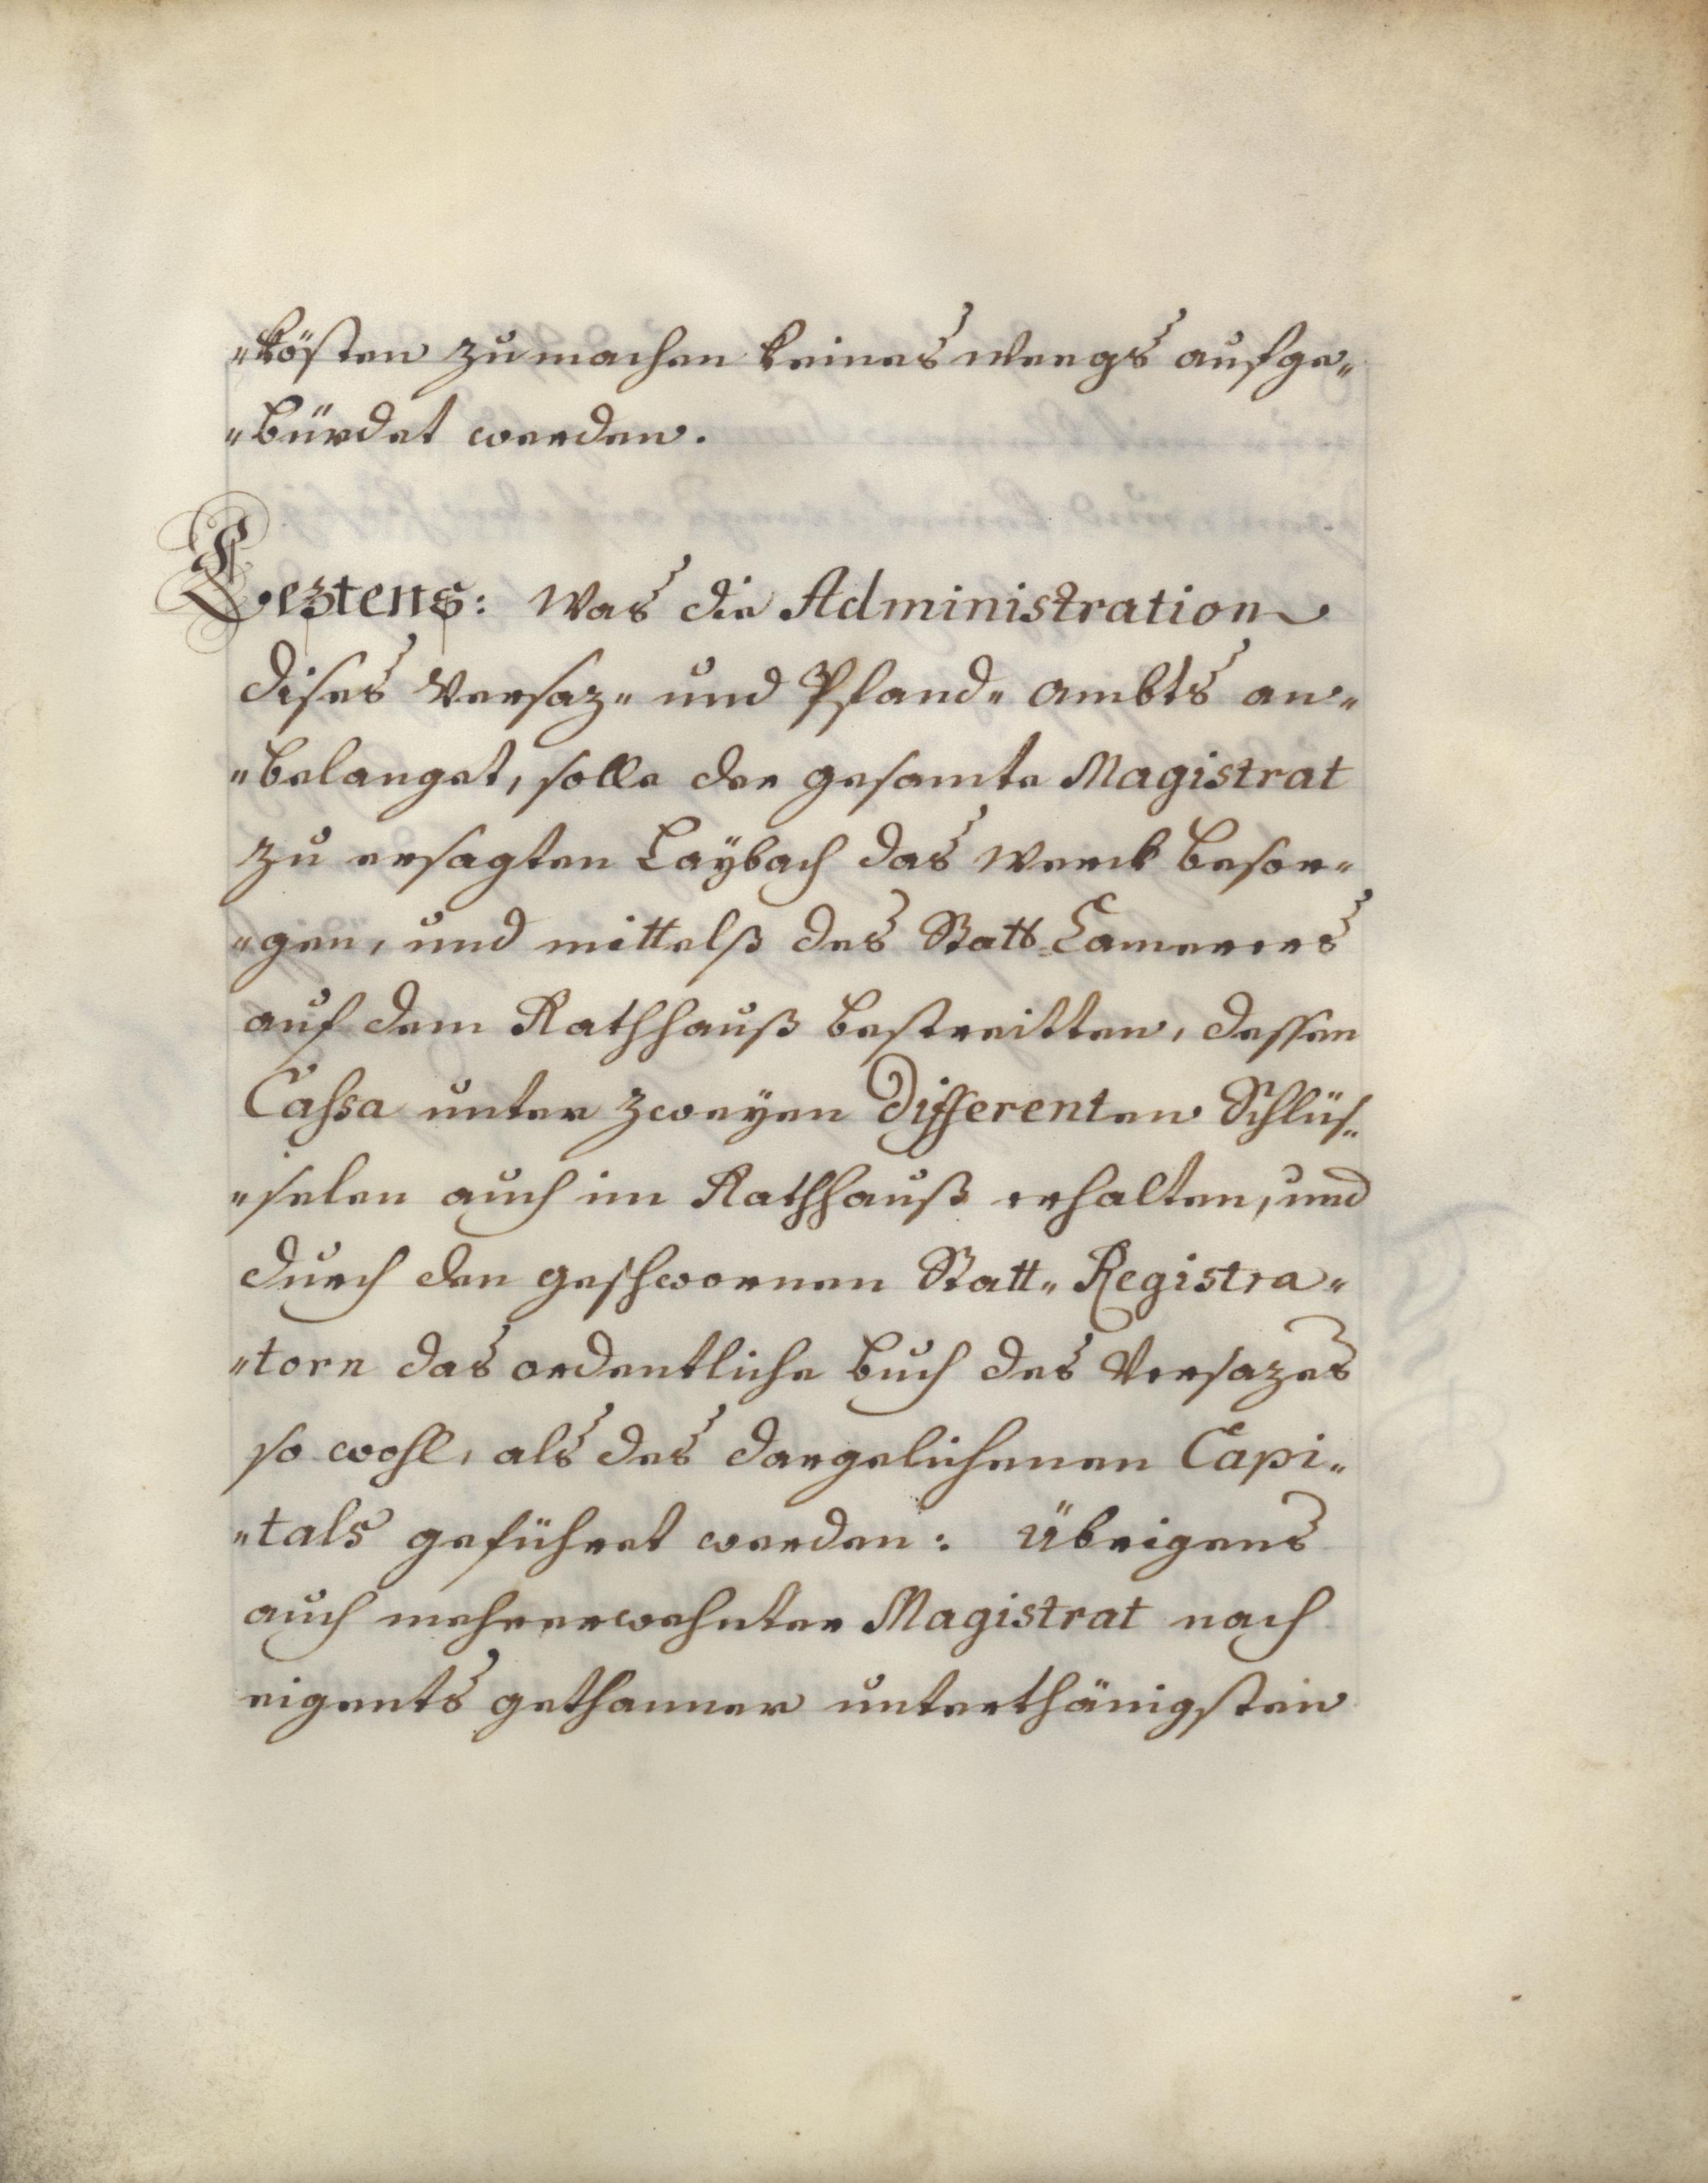 "kösten zu machen keines weegs aufge„
"bürdet werden.
Leztens: Was die Administration
dises Versaz„ und Pfand„ ambts an„
"belanget, solle der gesamte Magistrat
zu ersagten Laÿbach das werck besor„
"gen, und mittelß des Statt Camerers
auf dem Rathhauß bestreitten, dessen
Cassa unter zweyen Differenten Schlüs„
"selen auch im Rathhauß erhalten, und
durch den geschwornen Statt„ Registra„
"torn das ordentliche buch des Versazes
so wohl, als des dargelichenen Capi„
"tals geführet werden: Übrigens
auch mehrerwehnter Magistrat nach
eigents gethanner unterthänigsten